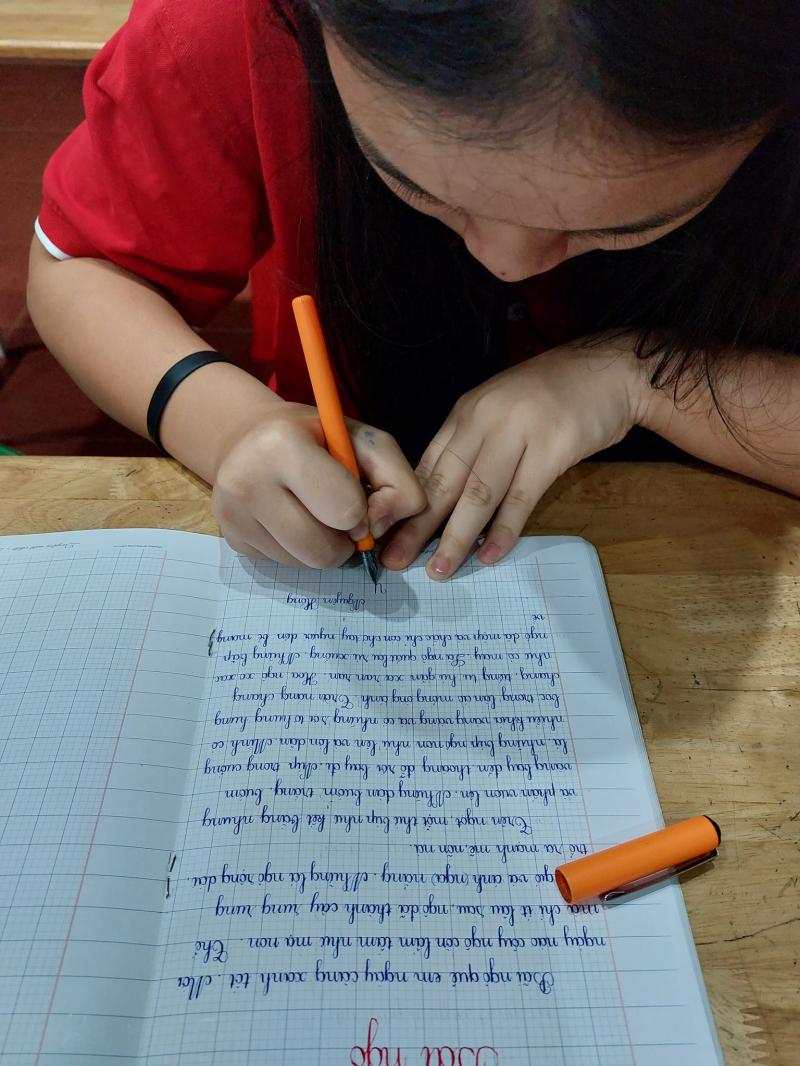 Bãi ngô
Bãi ngô quê em ngày càng xanh tốt. Mới
ngày nào cây ngô còn lấm tấm như mạ non. Thế
mà chỉ ít lâu sau, ngô đã thành cây rung rung
gió và ánh (ngô) nắng. Những lá ngô rộng dài,
trổ ra mạnh mẽ, nõn nà.
Trên ngọn, một thứ búp như kết bằng nhung
và phấn vươn lên. Những đàn bướm trắng, bướm
vàng bay đến, thoáng đỗ rồi bay đi. Núp trong cuống
lá, những búp ngô non nhú lên và lớn dần. Mình có
nhiều khía vàng vàng và có những sợi tơ hung hung
bọc trong làn áo mỏng óng ánh. Trời nắng chang
chang, tiếng tu hú gần xa ran ran. Hoa ngô xơ xác
như cỏ may. Lá ngô quắt lại rủ xuống. Những bắp
ngô đã mập và chắc chỉ còn chờ tay người đến bẻ mang
về
Nguyên Hồng